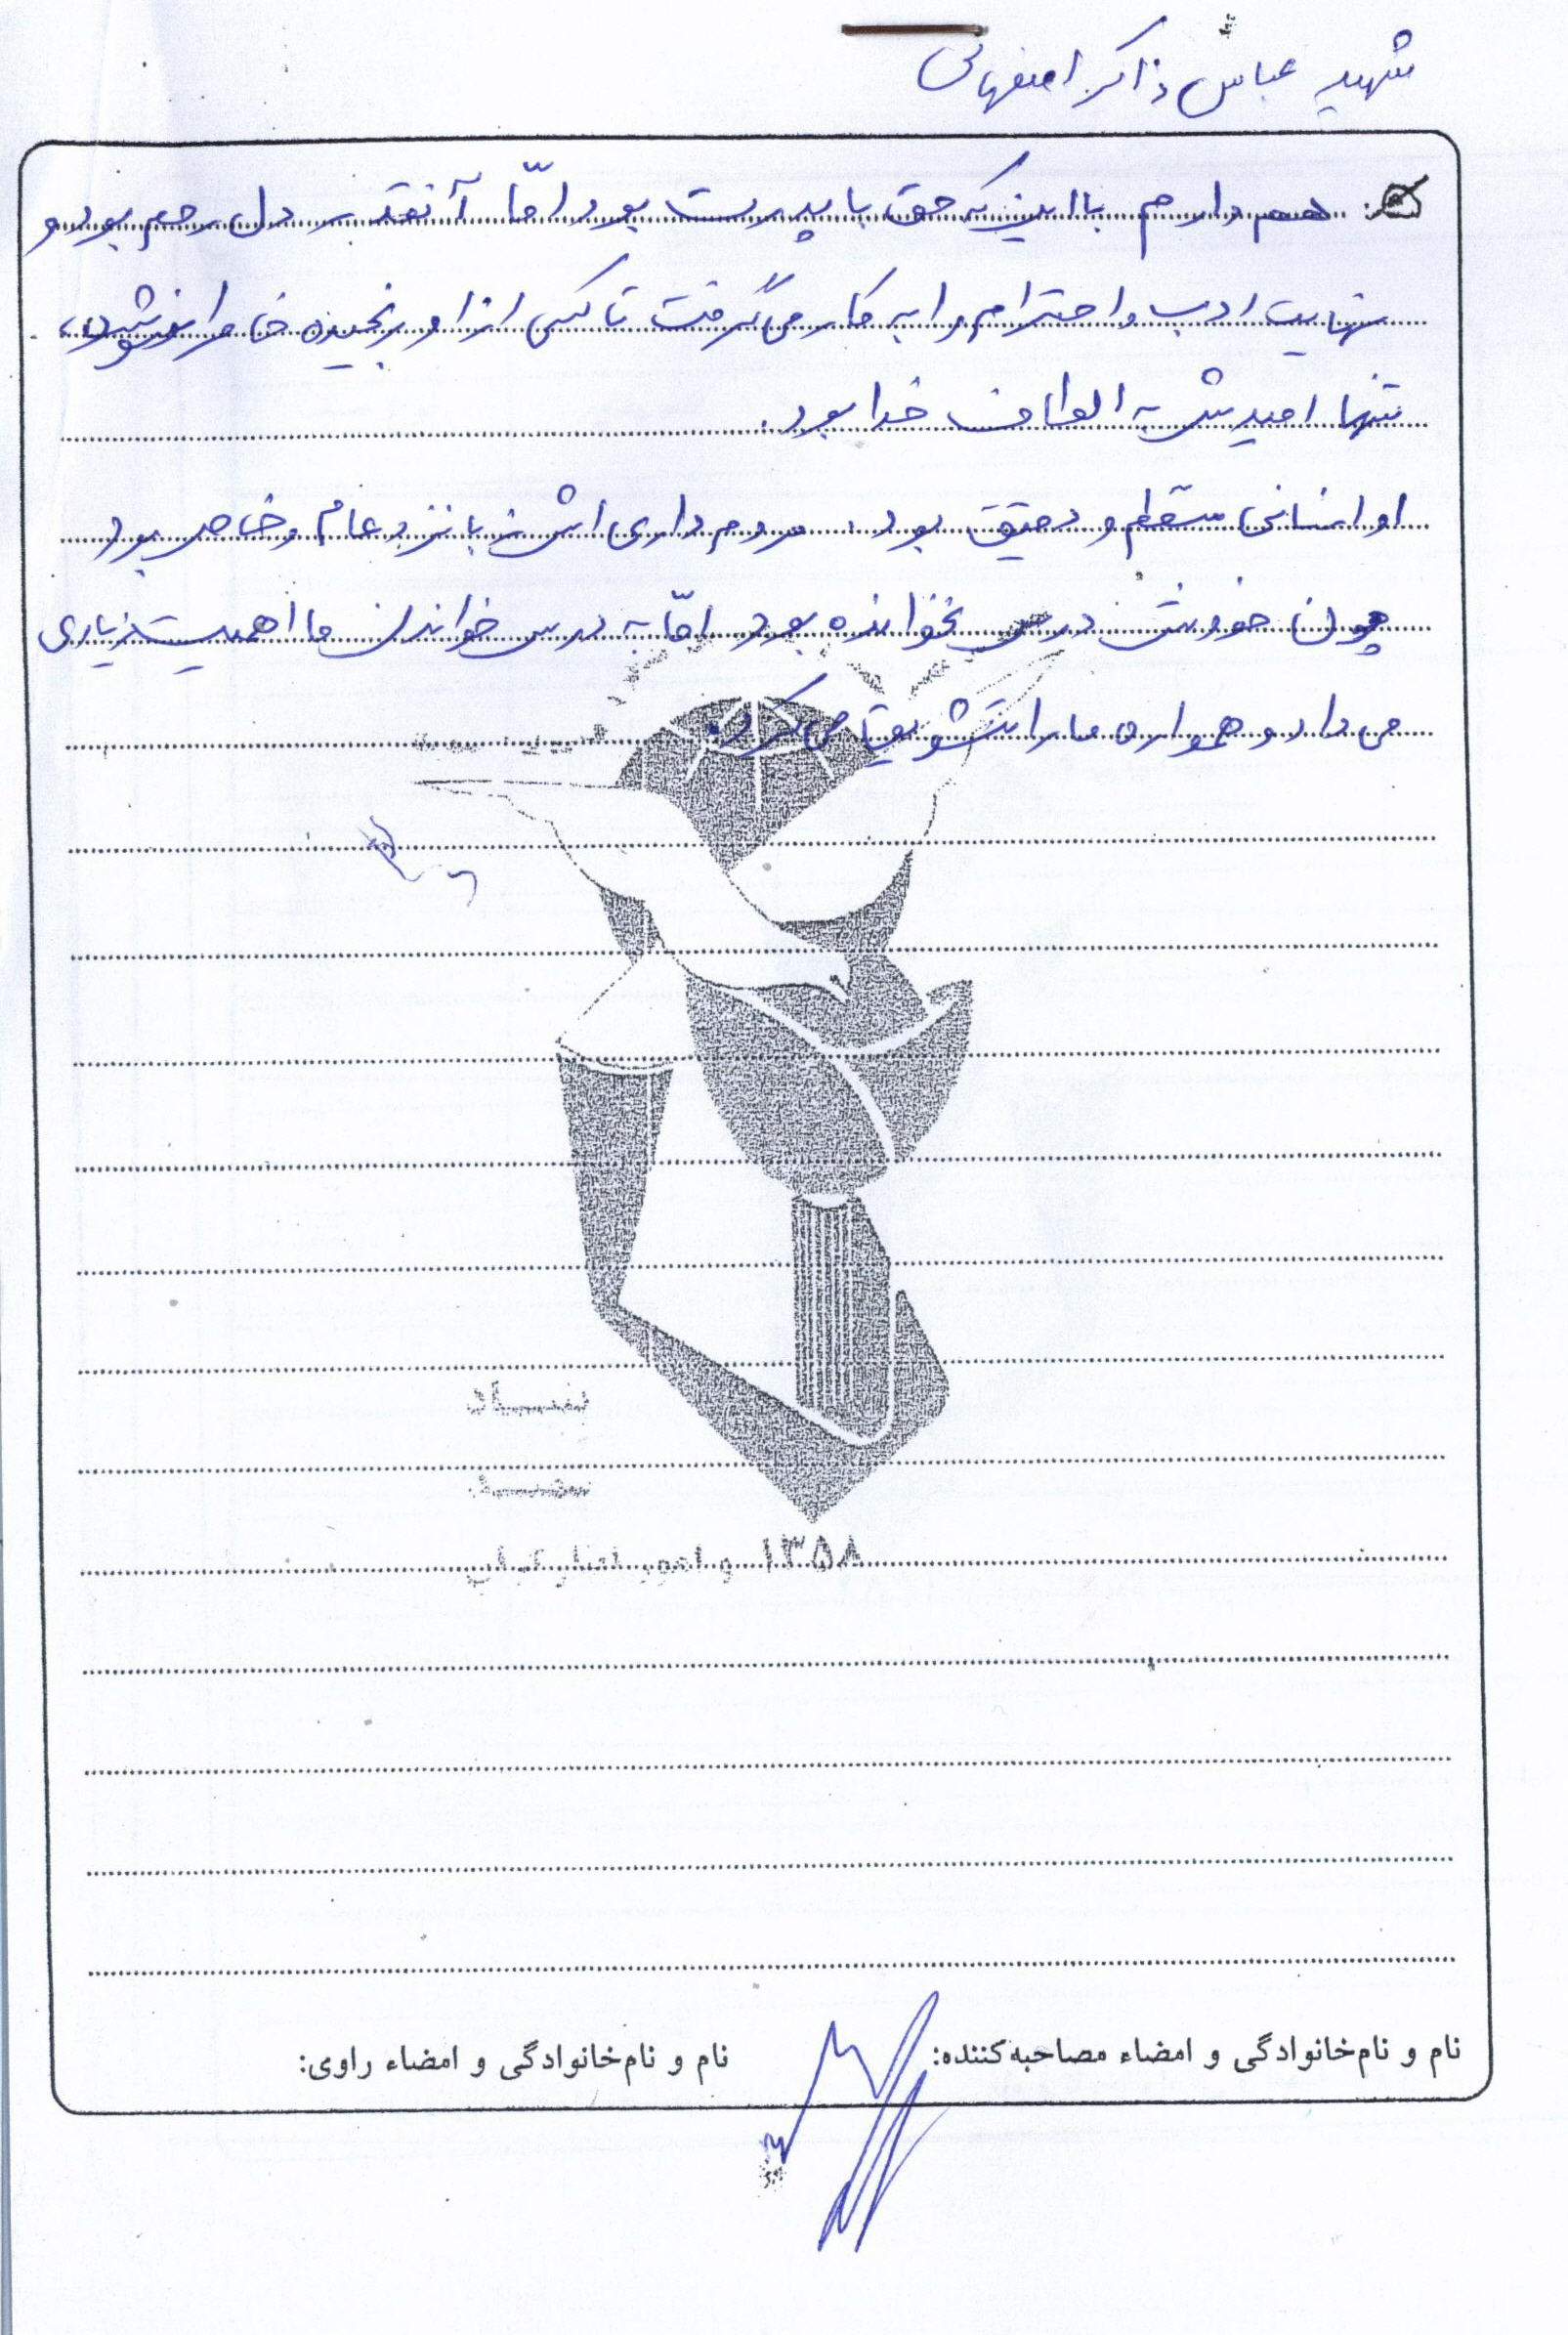 شهید عباس ذاکر اصفهانی
هم دارم با این که حق با پدرت بود امّا آنقدر دل رحم بود و
نهایت ادب و احترام را به کار می گرفت تا کسی از او رنجیده خاطر نشود،
تنها امیدش به الطاف خدا بود.
او انسانی منظم و دقیق بود. مردم داری اش زبانزد عام و خاص بود
چون خودش درس نخوانده بود امّا به درس خواندن ما اهمیت زیادی
می داد و همواره ما را تشویق می کرد.
بنیاد
شهید
و امور ایثارگران ۱۳۵۸
نام و نام‌خانوادگی و امضاء مصاحبه‌کننده:
نام و نام‌خانوادگی و امضاء راوی: